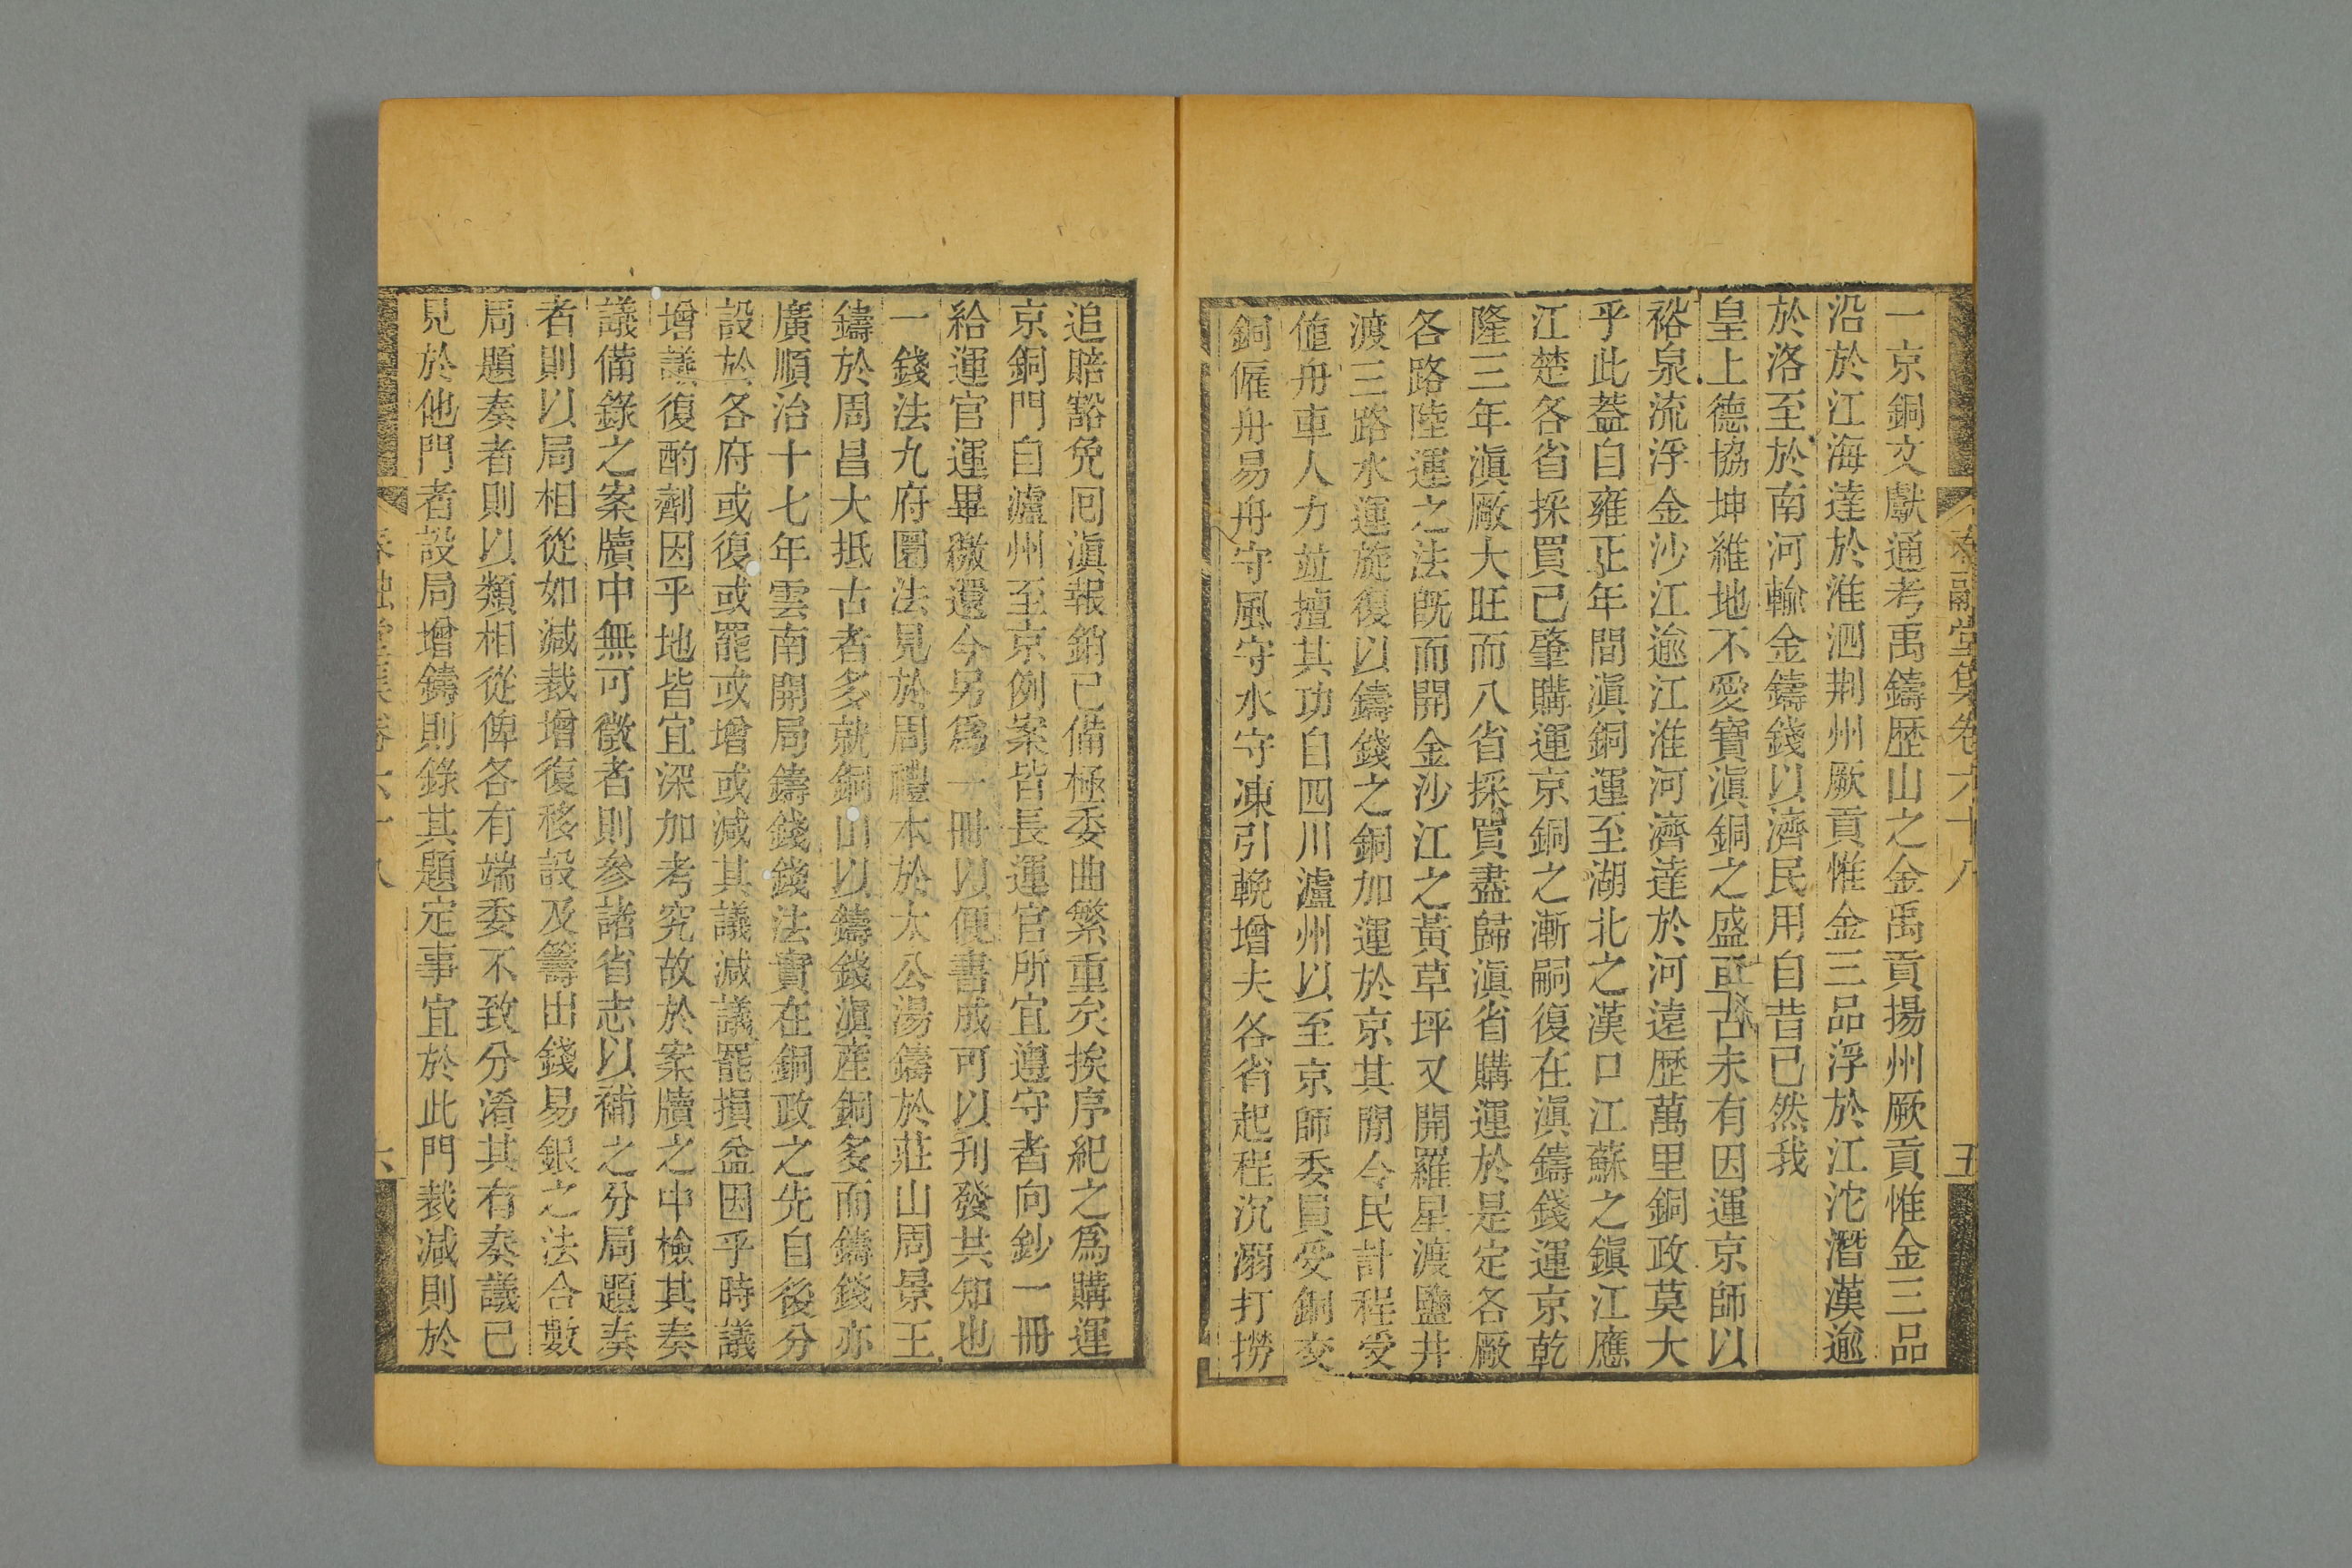 春融堂集卷六十八
五
一京銅文獻通考禹鑄歷山之金禹貢揚州厥貢惟金三品
沿於江海達於淮泗荆州厥貢惟金三品浮於江沱潛漢逾
於洛至於南河輸金鑄錢以濟民用自昔已然我
皇上德協坤維地不愛寶滇銅之盛亘古未有因運京師以
裕泉流浮金沙江逾江淮河濟達於河遠歷萬里銅政莫大
乎此葢自雍正年間滇銅運至湖北之漢口江蘇之鎭江應
江楚各省採買已肇購運京銅之漸嗣復在滇鑄錢運京乾
隆三年滇厰大旺而八省採買盡歸滇省購運於是定各厰
各路陸運之法旣而開金沙江之黃草坪又開羅星渡鹽井
渡三路水運旋復以鑄錢之銅加運於京其閒令民計程受
値舟車人力並擅其功自四川瀘州以至京師委員受銅交
銅僱舟易舟守風守水守凍引輓增夫各省起程沉溺打撈
追賠豁免囘滇報銷已備極委曲繁重矣挨序紀之爲購運
京銅門自瀘州至京例案皆長運官所宜遵守者向鈔一冊
給運官運畢繳還今另爲一冊以便書成可以刋發共知也
一錢法九府圜法見於周禮本於太公湯鑄於莊山周景王
鑄於周昌大抵古者多就銅山以鑄錢滇産銅多而鑄錢亦
廣順治十七年雲南開局鑄錢錢法實在銅政之先自後分
設於各府或復或罷或增或減其議減議罷損益因乎時議
增議復酌劑因乎地皆宜深加考究故於案牘之中檢其奏
議備錄之案牘中無可徵者則參諸省志以補之分局題奏
者則以局相從如減裁增復移設及籌出錢易銀之法合數
局題奏者則以類相從俾各有端委不致分淆其有奏議已
見於他門者設局增鑄則錄其題定事宜於此門裁減則於
春融堂集卷六十八
六